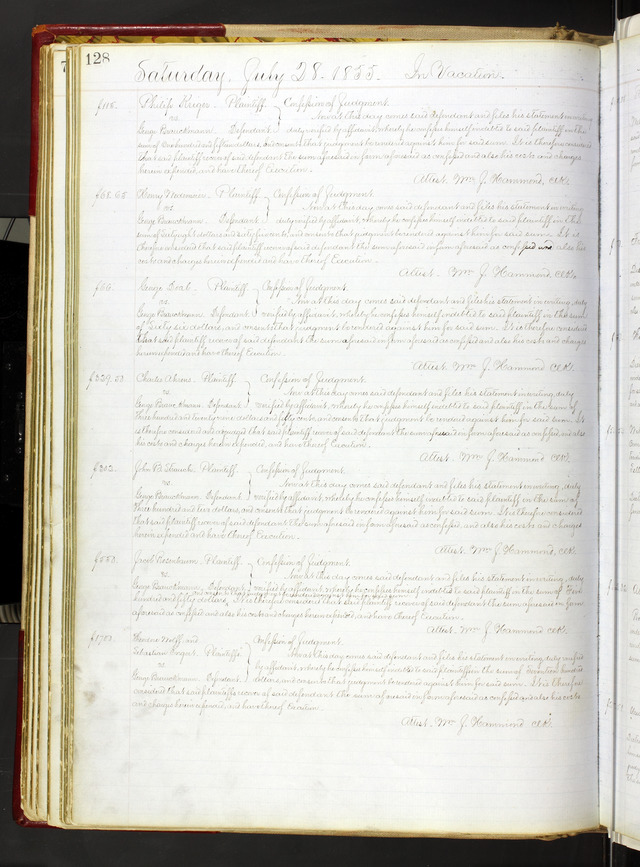 128
Saturday, July 28. 1855. In Vacation.
Philip Kruger. Plaintiff Confession of Judgment.
vs. Now at this day comes said defendant and files his statement in writing
George Defendant duly verified by affidavit, whereby he confesses himself indebted to said plaintiff in the
sum of One hundred and dollars, and consents that judgment be rendered against him for said sum. It is therefore considered
that said plaintiff recover of said defendant the sum aforesaid in form aforesaid as confessed and also his costs and charges
herein expended, and have thereof Execution.
Attest. Wm J. Hammond, Clk.
$68.65 Henry Plaintiff Confession of Judgment.
vs. Now at this day comes said defendant and files his statement in writing
George Defendant duly verified by affidavit, whereby he confesses himself indebted to said plaintiff in the
sum of sixty eight dollars and sixty five cents, and consents that judgment be rendered against him for said sum. It is
therefore considered that said plaintiff recover of said defendant the sum aforesaid in form aforesaid as confessed and also his
costs and charges herein expended and have thereof Execution.
Attest. Wm J. Hammond, Clk.
$66. George Plaintiff Confession of Judgment.
vs. Now at this day comes said defendant and files his statement in writing, duly
George Defendant verified by affidavit, whereby he confesses himself indebted to said plaintiff in the sum
of sixty six dollars, and consents that judgment be rendered against him for said sum. It is therefore considered
that said plaintiff recover of said defendant the sum aforesaid in form aforesaid as confessed and also his costs and charges
herein expended and have thereof Execution.
Attest. Wm J. Hammond Clk.
Charles Ahrens. Plaintiff Confession of Judgment.
vs. Now at this day comes said defendant and files his statement in writing, duly
George Defendant verified by affidavit, whereby he confesses himself indebted to said plaintiff in the sum of
Three hundred and twenty nine dollars and cents, and consents that judgment be rendered against him for said sum. It
is therefore considered and adjudged that said plaintiff recover of said defendant the sum aforesaid in form aforesaid as confessed, and also
his costs and charges herein expended, and have thereof Execution.
Attest. Wm J. Hammond Clk.
John B. Plaintiff Confession of Judgment.
vs. Now at this day comes said defendant and files his statement in writing, duly
George Defendant verified by affidavit, whereby he confesses himself indebted to said plaintiff in the sum of
Three hundred and two dollars, and consents that judgment be rendered against him for said sum. It is therefore considered
that said plaintiff recover of said defendant the sum aforesaid in form aforesaid as confessed, and also his costs and charges
herein expended and have thereof Execution.
Attest. Wm J. Hammond, Clk.
Jacob Rosenbaum. Plaintiff Confession of Judgment.
vs. Now at this day comes said defendant and files his statement in writing, duly
George Defendant verified by affidavit, whereby he confesses himself indebted to said plaintiff in the sum of
and consents that judgment be rendered against him for said sum
hundred and fifty dollars. It is therefore considered that said plaintiff recover of said defendant the sum aforesaid in form
aforesaid as confessed and also his costs and charges herein expended, and have thereof Execution.
Attest. Wm J. Hammond Clk.
$1703. Wolff and Confession of Judgment.
Sebastian Plaintiffs Now at this day comes said defendant and files his statement in writing, duly verified
vs. by affidavit, whereby he confesses himself indebted to said plaintiffs in the sum of Seventeen hundred
George Defendant. dollars, and consents that judgment be rendered against him for said sum. It is therefore
considered that said plaintiffs recover of said defendant the sum aforesaid in form aforesaid as confessed and also his costs
and charges herein expended, and have thereof Execution.
Attest. Wm J. Hammond Clk.